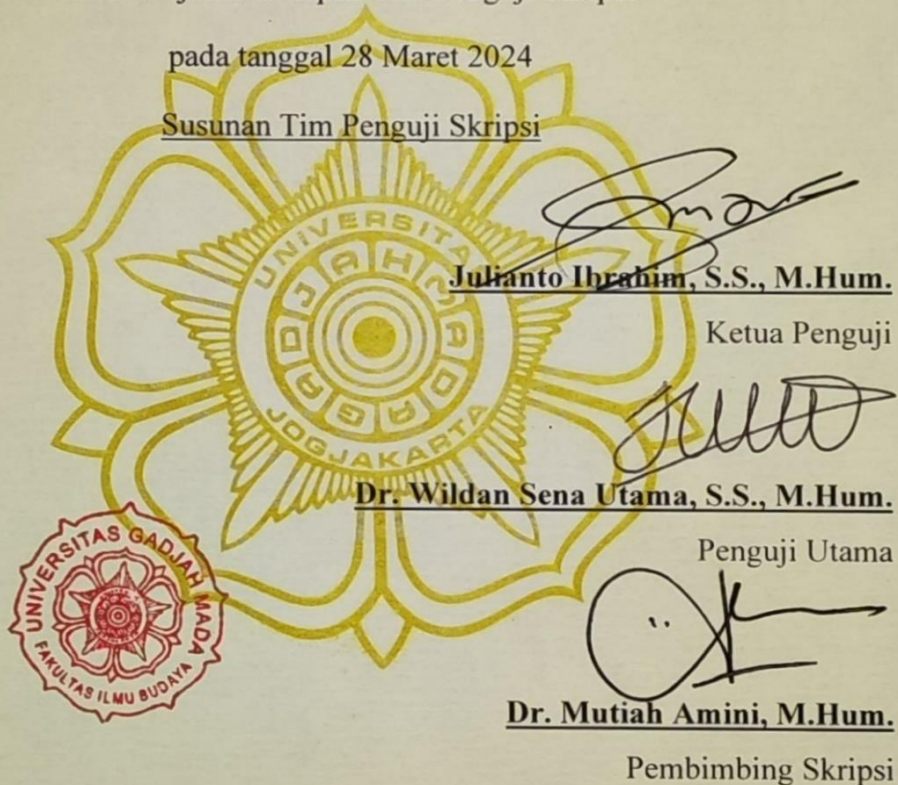 pada tanggal 28 Maret 2024
Susunan Tim Penguji Skripsi
UNIVERSITAS
GADJAH MADA
JOGJAKARTA
Julianto Ibrahim, S.S., M.Hum.
Ketua Penguji
Dr. Wildan Sena Utama, S.S., M.Hum.
Penguji Utama
UNIVERSITAS GADJAH MADA
FAKULTAS ILMU BUDAYA
Dr. Mutiah Amini, M.Hum.
Pembimbing Skripsi